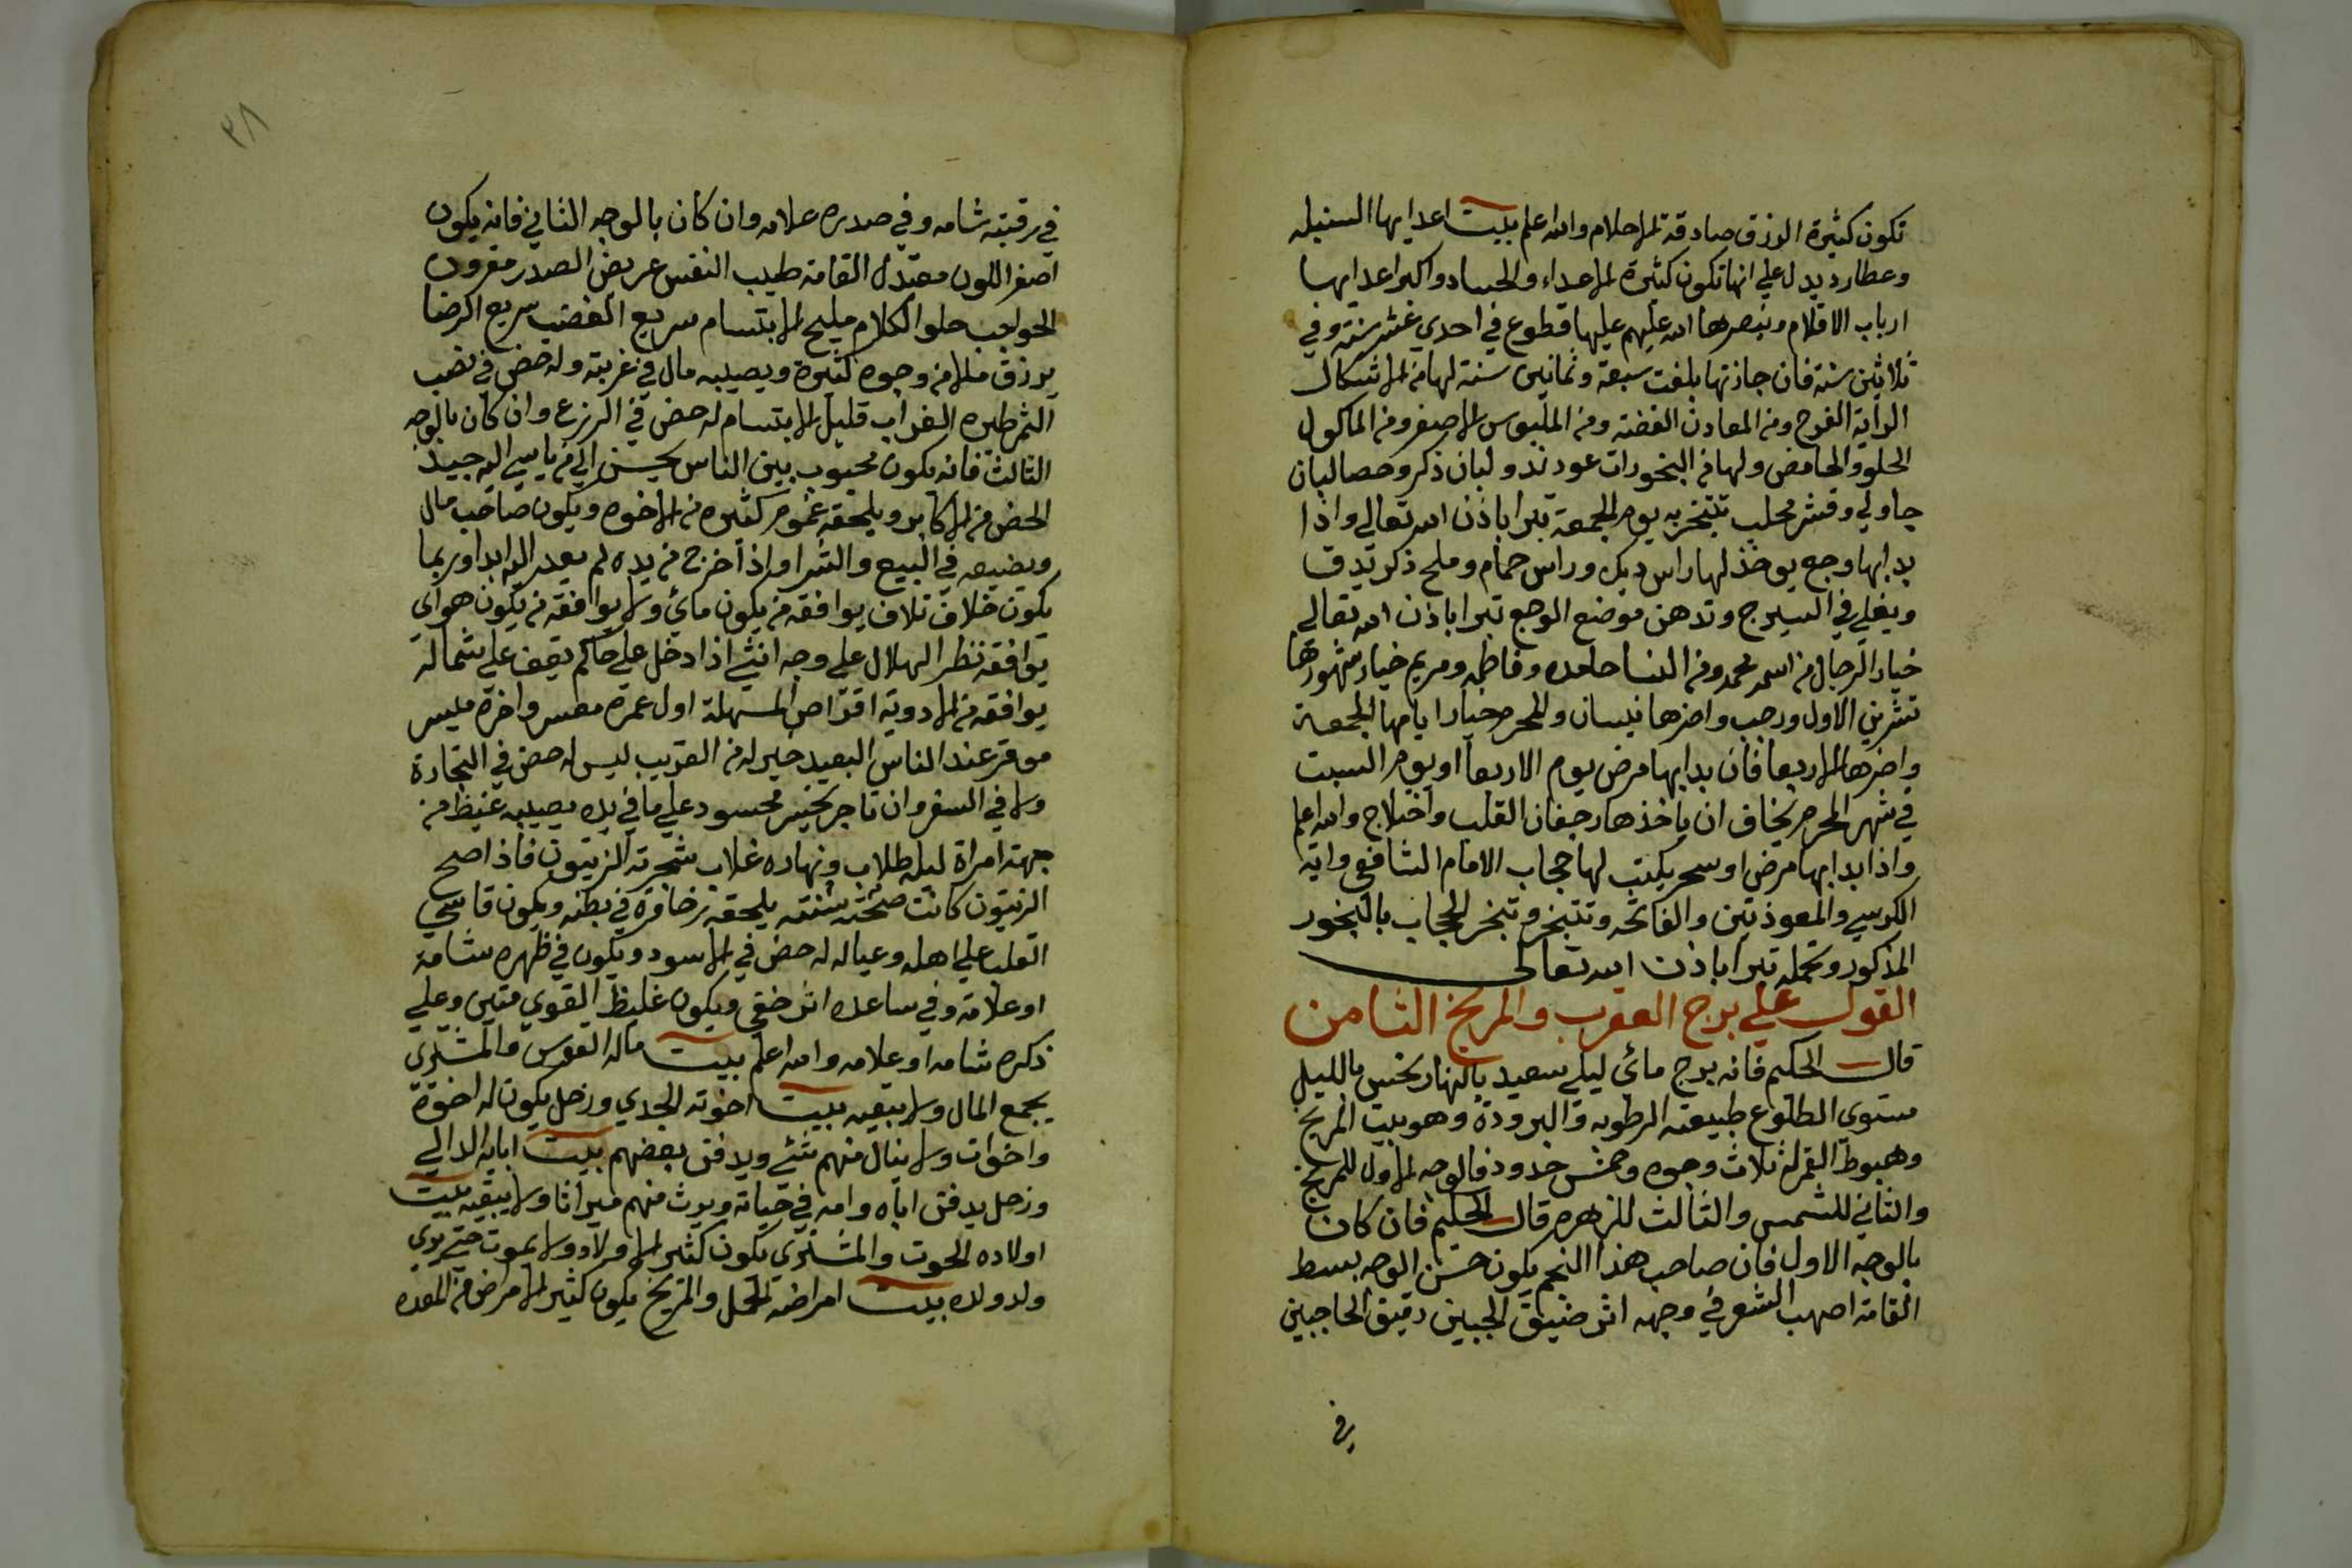 تكون كثيرة الرزق صادقة الاحلام والله اعلم بيت اعدايها السنبله
وعطارد يدل علي انها تكون كثيرة الاعداء والحساد واكبر اعدايها
ارباب الاقلام وينصرها الله عليهم عليها قطوع في احدي عشر سنة وفي
ثلاثين سنة فان جازتها بلغت سبعة وثمانين سنة لها من الاشكال
الراية الفرح ومن المعادن الفضة ومن الملبوس الاصفر ومن الماكول
الحلو والحامض ولها من البخورات عود ند ولبان ذكر وحصالبان
جاولي وقشر محلب تتبخر به يوم الجمعة تبرا باذن الله تعالي واذا
بدا بها وجع يوخذ لها راس ديك وراس حمام وملح ذكر تدق
ويغلي في السيرج وتدهن موضع الوجع تبرا باذن الله تعالي
خيار الرجال من اسمه محمد ومن النسا حامده وفاطمه ومريم خيار شهورها
تشرين الاول ورجب واضرها نيسان والمحرم خيار ايامها الجمعة
واضرها الاربعا فان بدا بها مرض يوم الاربعا او يوم السبت
في شهر المحرم يخاف ان ياخذها رجفان القلب واختلاج والله اعلم
واذا بدا بها مرض او سحر يكتب لها حجاب الامام الشافعي واية
الكرسي والمعوذتين والفاتحه وتتبخر وتبخر الحجاب بالبخور
المذكور وتحمله تبرا باذن الله تعالى
القول علي برج العقرب والمريخ الثامن
قال الحكيم فانه برج مائي ليلي سعيد بالنهار نحس بالليل
مستوى الطلوع طبيعته الرطوبه والبرودة وهو بيت المريخ
وهبوط القمر له ثلاث وجوه وخمس حدود فالوجه الاول للمريخ
والثاني للشمس والثالث للزهره قال الحكيم فان كان
بالوجه الاول فان صاحب هذا النجم يكون حسن الوجه بسط
القامة اصهب الشعر في وجهه اثر ضيق الجبين دقيق الحاجبين
في
٣٨
في رقبته شامه وفي صدره علامه وان كان بالوجه الثاني فانه يكون
اصفر اللون معتدل القامة طيب النفس عريض الصدر مقرون
الحواجب حلو الكلام مليح الابتسام سريع الغضب سريع الرضا
يرزق من وجوه كثيرة ويصيبه مال في غربته وله حض في نصب
الثمر طيره الغراب قليل الابتسام له حض في الزرع وان كان بالوجه
الثالث فانه يكون محبوب بين الناس يحسن الي من ياسي اليه جيد
الحض من الاكابر ويلحقه غموم كثيره من الاخوه ويكون صاحب مال
ويضيعه في البيع والشرا واذا خرج من يده لم يعد اليه ابدا وربما
يكون خلاف تلاف يوافقه من يكون مائي ولا يوافقه من يكون هواي
يوافقه نظر الهلال علي وجه انثي اذا دخل علي حاكم يقف علي شماله
يوافقه من الادوية اقراص المسهلة اول عمره معسر واخره ميسر
موقر عند الناس البعيد خير له من القريب ليس له حض في التجارة
ولا في السفر وان تاجر يخسر محسود علي ما في يده يصيبه غيظ من
جهة امراة ليله طلاب ونهاره غلاب شجرته الزيتون فاذا صح
الزيتون كانت صحته سنته يلحقه في بطنه ويكون قاسي
القلب علي اهله وعياله له حض في الاسود ويكون في ظهره شامة
او علامة وفي ساعده اثر خفي ويكون غليظ القوي متين وعلي
ذكره شامه او علامه والله اعلم بيت ماله القوس والمشتري
يجمع المال ولا يبقيه بيت اخوته الجدي وزحل يكون له اخوة
واخوات ولا ينال منهم شئ ويدفن بعضهم بيت ابايه الدالي
وزحل يدفن اباه وامه في حياته ويرث منهم ميراثا ولا يبقيه بيت
اولاده الحوت والمشتري يكون كثير الاولاد ولا يموت حتي يري
ولد ولده بيت امراضه الحمل والمريخ يكون كثير الامراض من المعده